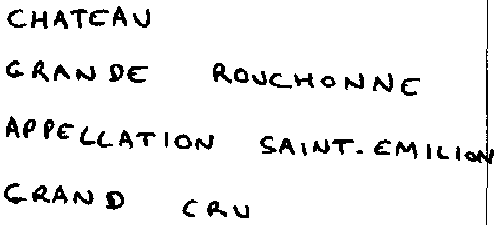 CHATEAU
GRANDE ROUCHONNE
APPELLATION SAINT-EMILION
GRAND CRU